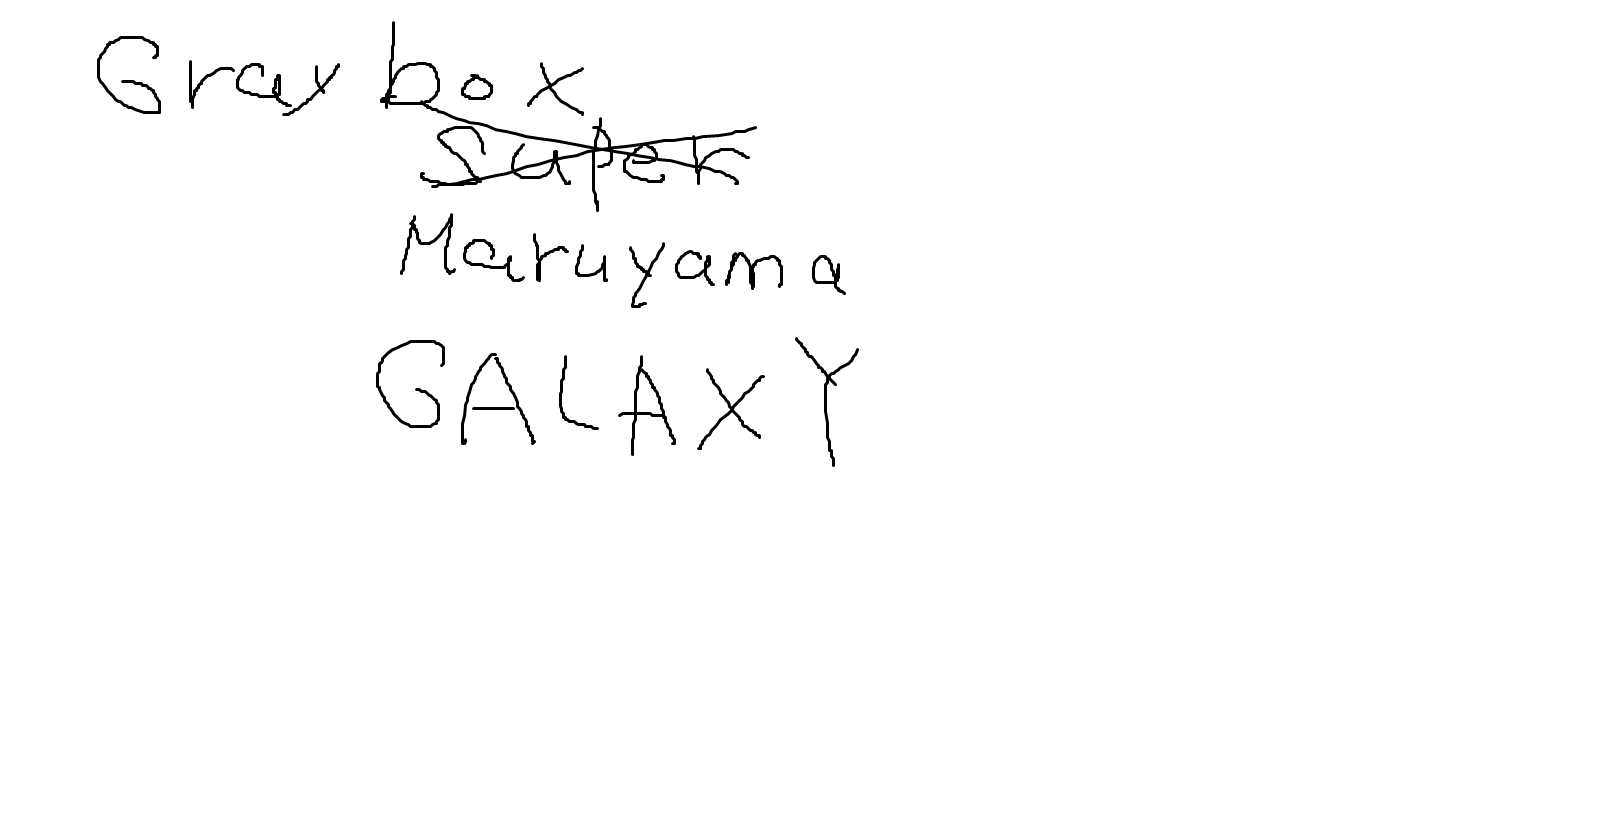 Gray box
Super
Maruyama
GALAXY